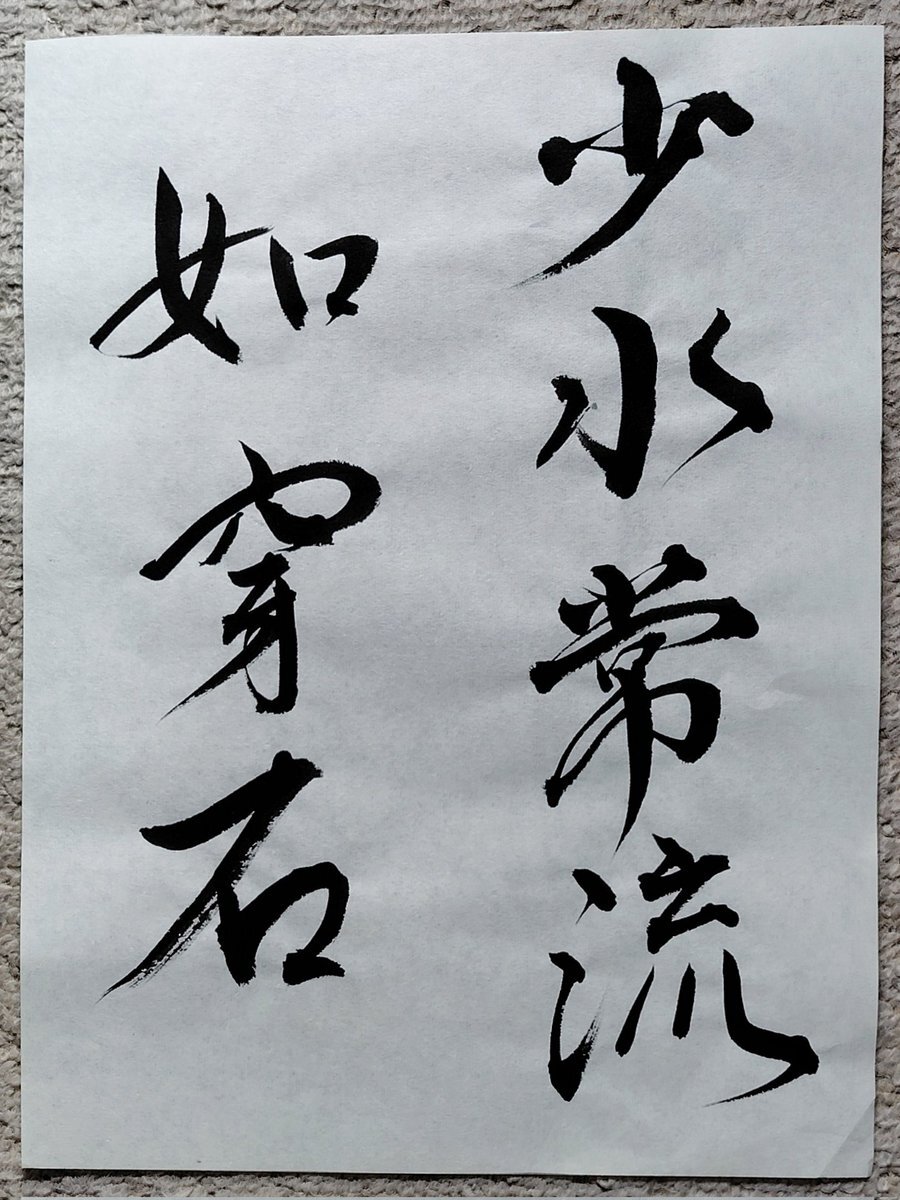 少水常流
如穿石